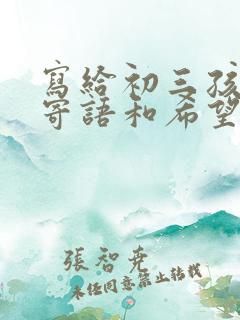 寫給初三孩
寄語和希望
張智堯
未經同意禁止轉載